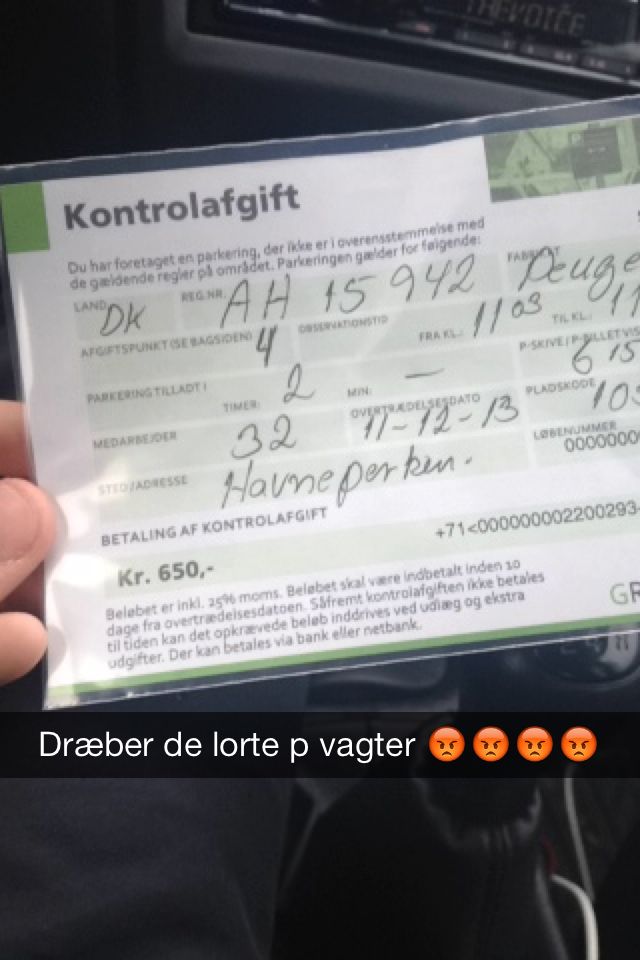 THE VOICE
Kontrolafgift
Du har foretaget en parkering, der ikke er i overensstemmelse med
de gældende regler på området. Parkeringen gælder for følgende:
LAND DK REG.NR. AH 15 942 Peuge
AFGIFTSPUNKT (SE BAGSIDEN) 4 OBSERVATIONSTID FRA KL.: 11 03 TIL KL.: 11
PARKERING TILLADT I TIMER: 2 MIN: — 6 15
MEDARBEJDER 32 OVERTRÆDELSESDATO 11-12-13 PLADSKODE 103
STED/ADRESSE Havneperken. LØBENUMMER 0000000
BETALING AF KONTROLAFGIFT
+71<000000002200293-
Kr. 650,-
Beløbet er inkl. 25% moms. Beløbet skal være indbetalt inden 10
dage fra overtrædelsesdatoen. Såfremt kontrolafgiften ikke betales
til tiden kan det opkrævede beløb inddrives ved udlæg og ekstra
udgifter. Der kan betales via bank eller netbank.
GR
Dræber de lorte p vagter 😡😡😡😡